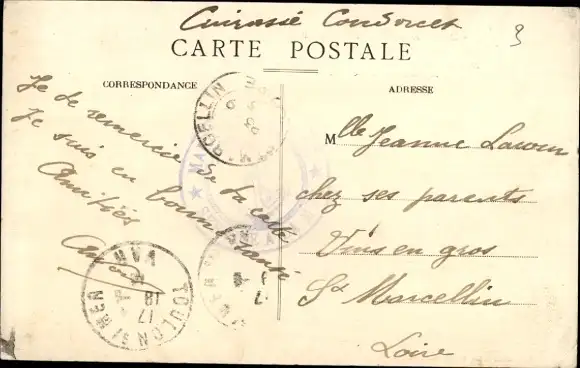 Cuirassé Condorcet
CARTE POSTALE
CORRESPONDANCE
ADRESSE
Je te remercie de ta carte
Je suis en bonne santé
Amitiés
Mlle Jeanne
chez ses parents
Vins en gros
St Marcellin
Loire
TOULON VAR
17
18